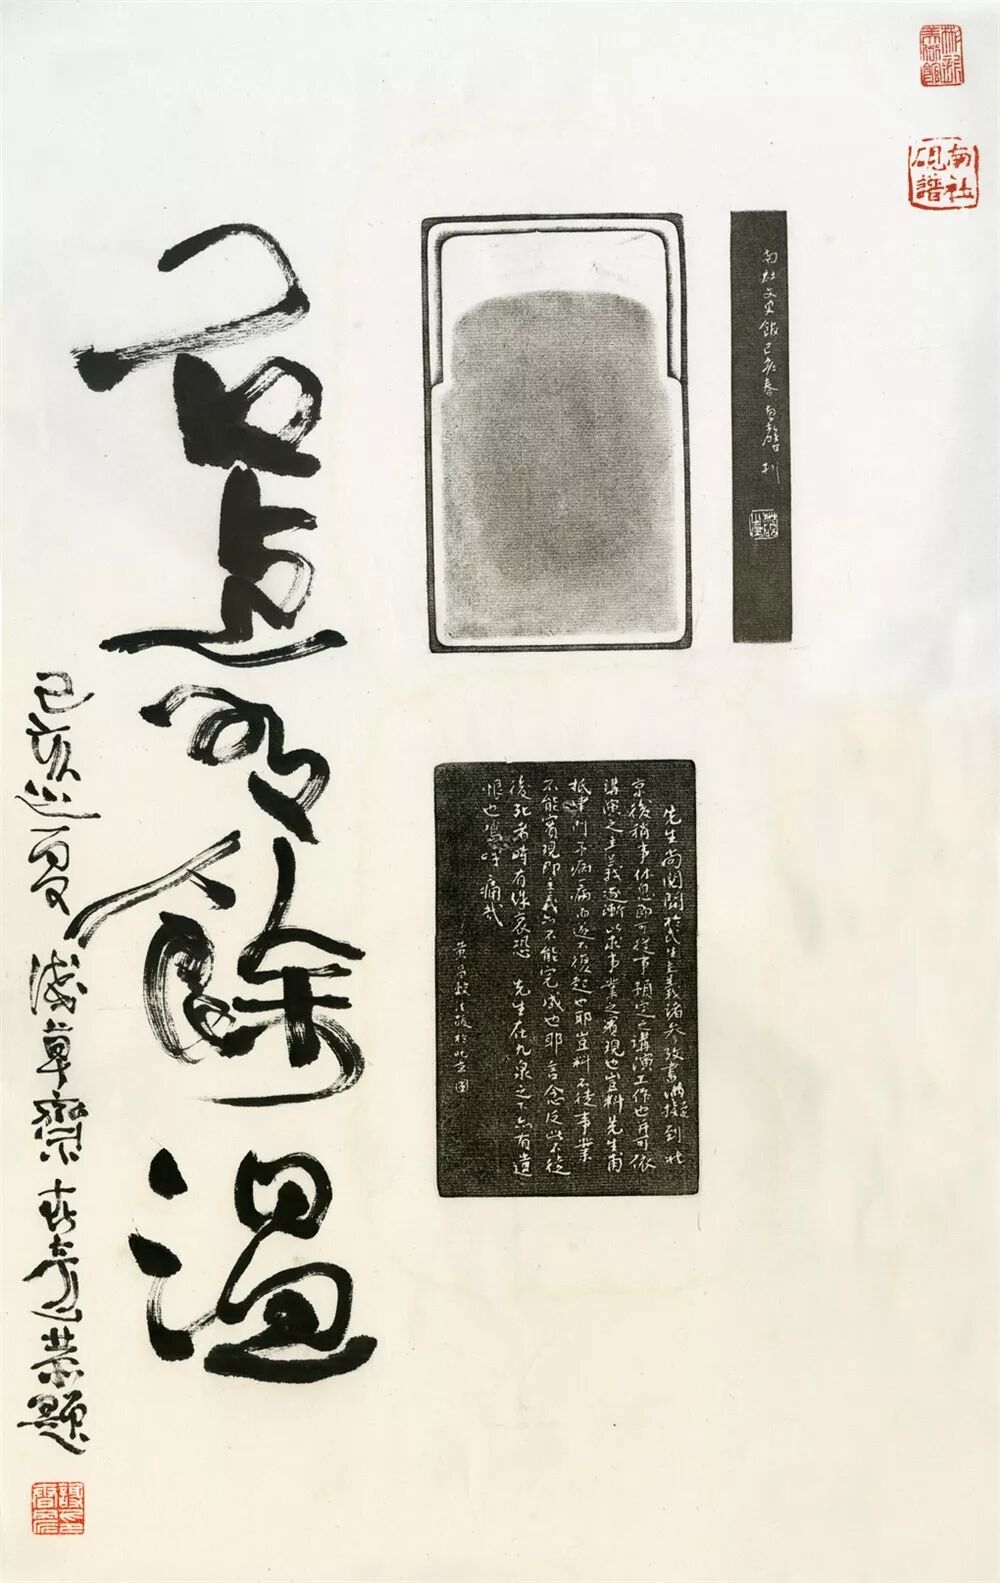 南社硯譜
南社文史館己亥春刊
先生尚閱關於民生主義諸參攷書滿擬到北
京後稍事休息即可從事預定之講演工作也并可依
講演之主義逐漸以求事業之實現也豈料先生甫
抵津門予病病而遂不復起也耶豈料不徒事業
不能實現即主義亦不能完成也耶言念及此不徒
後死者時有殊哀恐 先生在九泉之下亦有遺
恨也嗚呼痛哉
黃昌穀於北京
石点有餘温
己亥迎夏 淺草齋 榮題